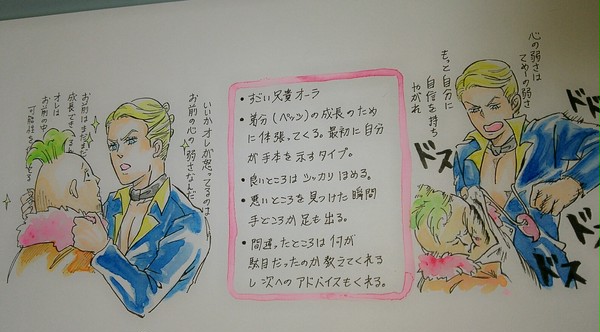 いいかオレが怒ってるのは
お前の心の弱さなんだ
お前はまだまだ
成長できる
オレは
お前の中の
可能性を
・すごい兄貴オーラ
・弟分(ペッシ)の成長のため
に体張ってくる。最初に自分
が手本を示すタイプ。
・良いところはシッカリほめる。
・悪いところを見つけた瞬間
手どころか足も出る。
・間違ったところは何が
駄目だったのか教えてくれる
し次へのアドバイスもくれる。
心の弱さは
てめーの弱さ
もっと自分に
自信を持ち
やがれ
ドス
ドス
ドス
ドス